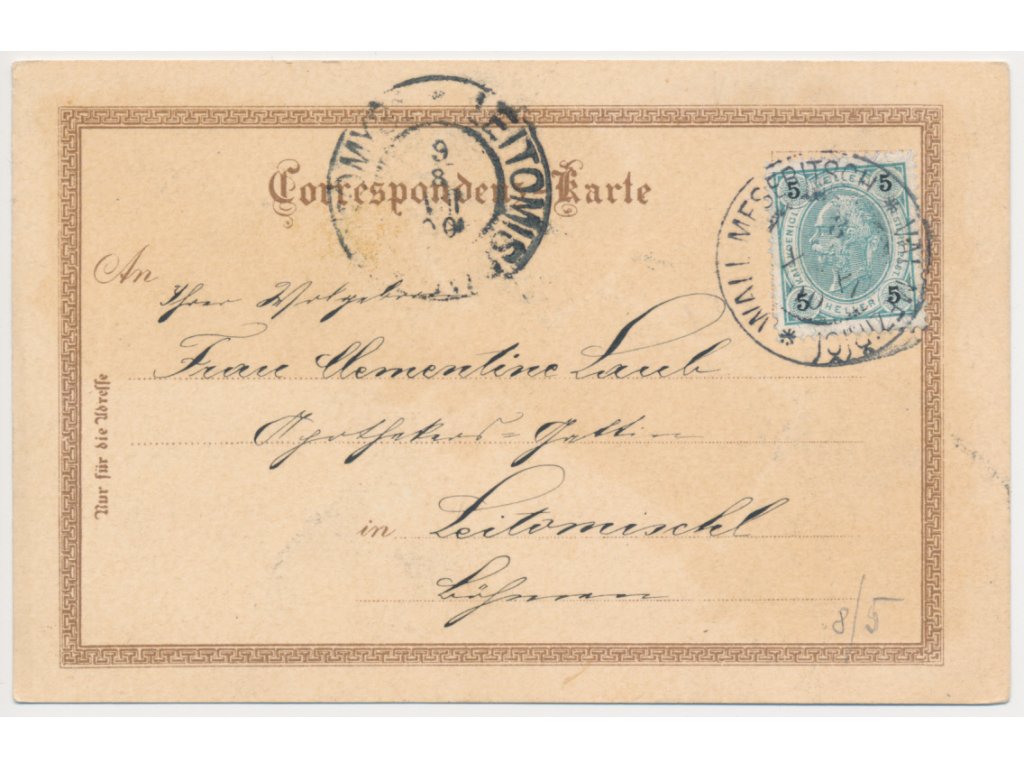 LEITOMIS
Correspondenz-Karte
WALL. MESERITSCH
5 5
HELLER
5 5
An
Ihrer Wolgeboren
Frau Clementine Laub
Apothekers=Gattin
in Leitomischl
Böhmen
Nur für die Adresse
8/5